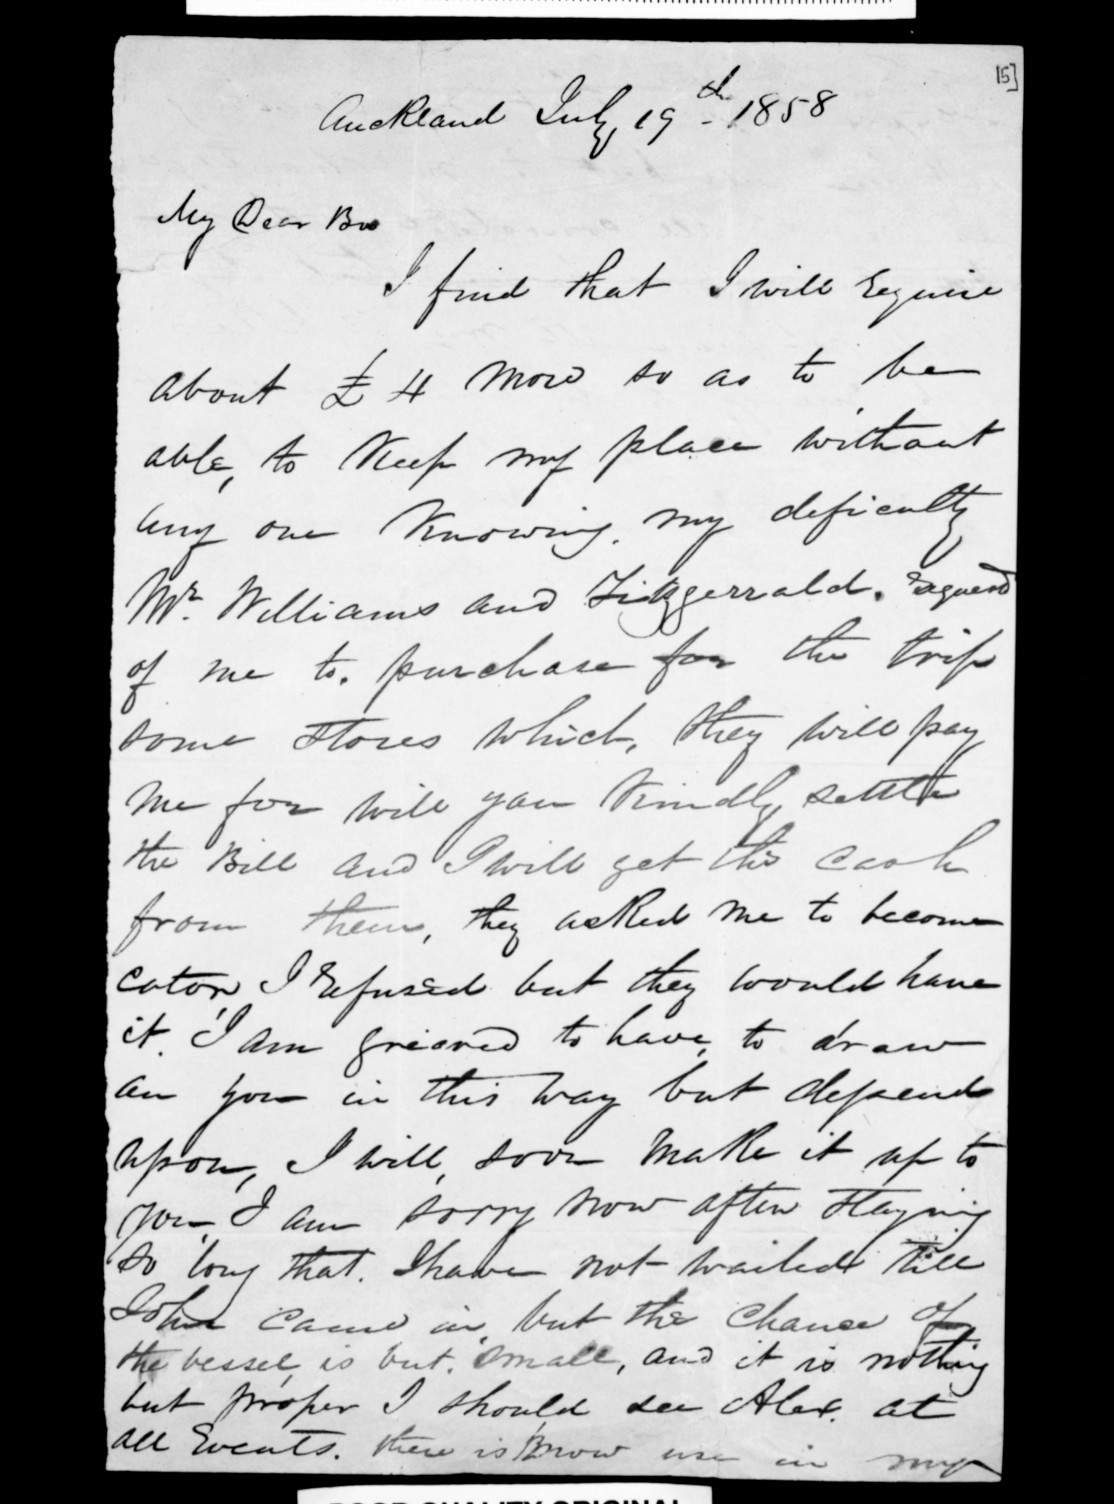 15]
Auckland July 19th - 1858
My Dear Bro
I find that I will Require
about £4 More so as to be
able, to Keep my place without
any one Knowing. my deficulty
Mr. Williams and Fitzgerrald. Requerd
of me to. purchase for the trip
some stores which, they will pay
me for will you Kindly settle
the Bill and I will get the cash
from them, they asked me to become
cator, I Refused but they would have
it. I am grieved to have, to draw
on you in this way but depend
upon, I will, soon Make it up to
you, I am sorry now after staying
so long that. I have not waited till
John came in, but the chance of
the vessel, is but. small, and it is nothing
but proper I should see Alex. at
all Events. there is Know use in my
POOR QUALITY ORIGINAL